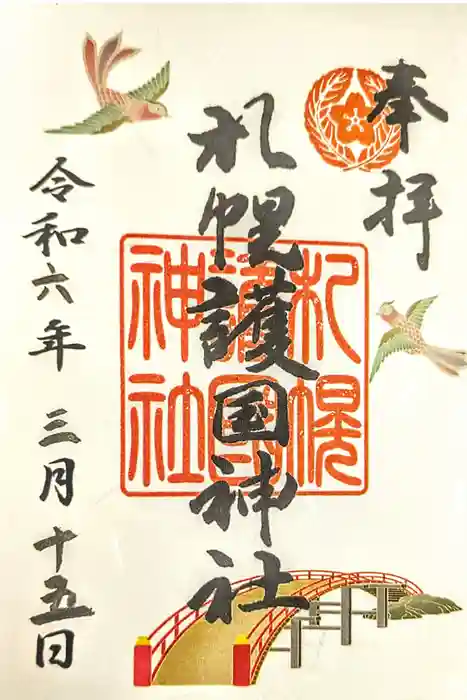 奉拝
札幌護国神社
札幌
護国
神社
令和六年 三月十五日